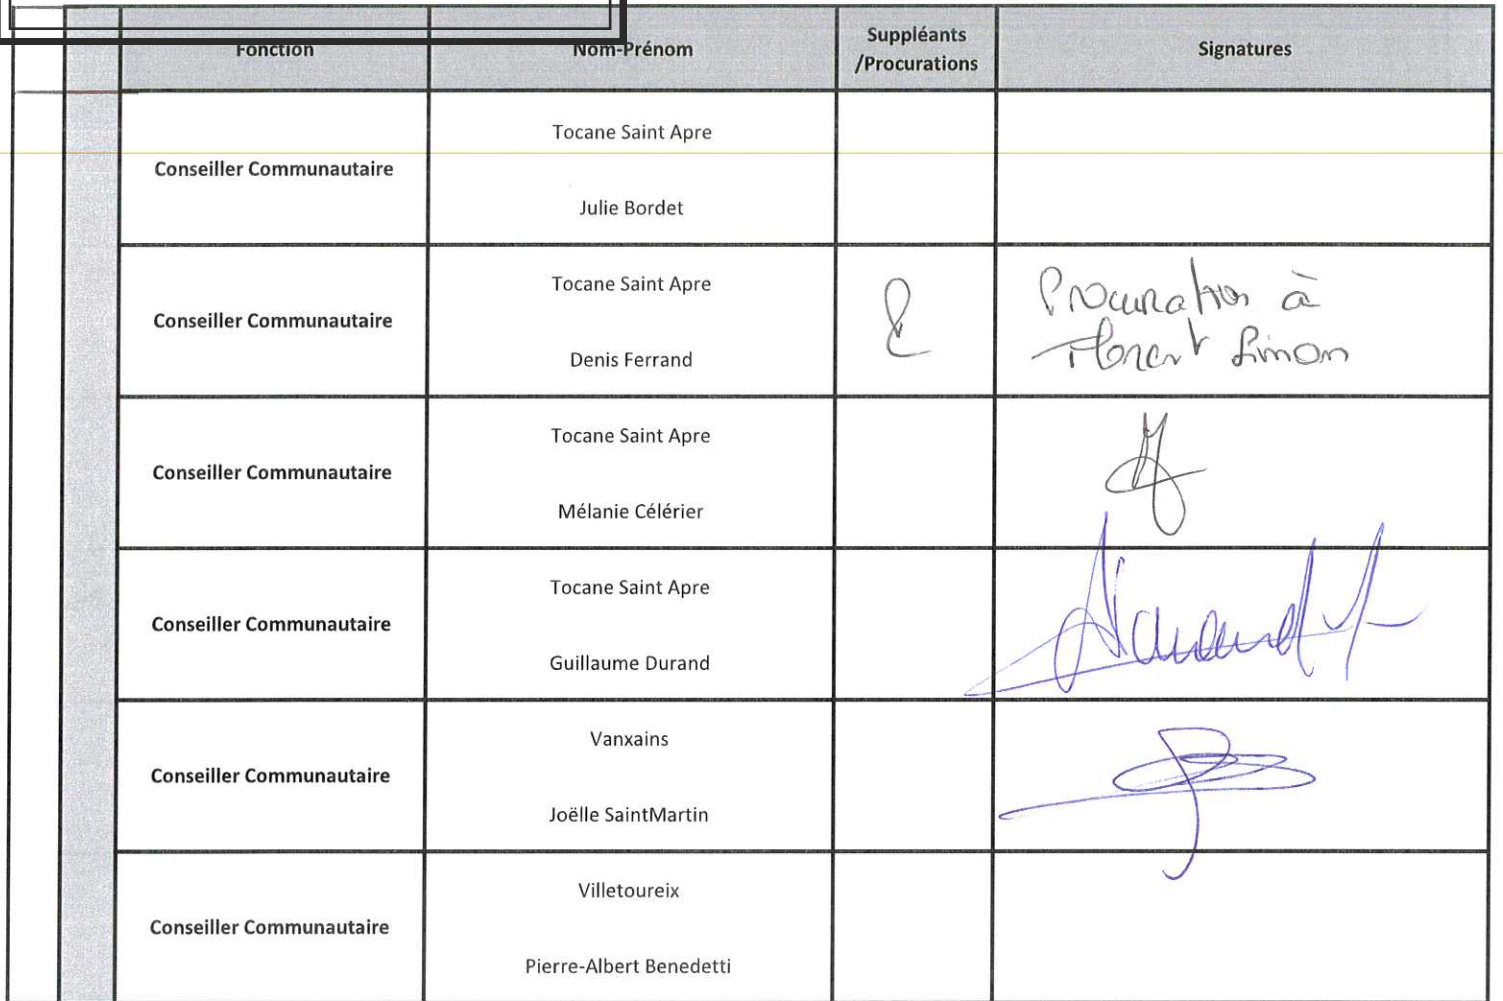 Fonction Nom-Prénom Suppléants /Procurations Signatures
Conseiller Communautaire
Tocane Saint Apre
Julie Bordet
Conseiller Communautaire
Tocane Saint Apre
Denis Ferrand
Procuration à
Florent Simon
Conseiller Communautaire
Tocane Saint Apre
Mélanie Célérier
Conseiller Communautaire
Tocane Saint Apre
Guillaume Durand
Conseiller Communautaire
Vanxains
Joëlle SaintMartin
Conseiller Communautaire
Villetoureix
Pierre-Albert Benedetti